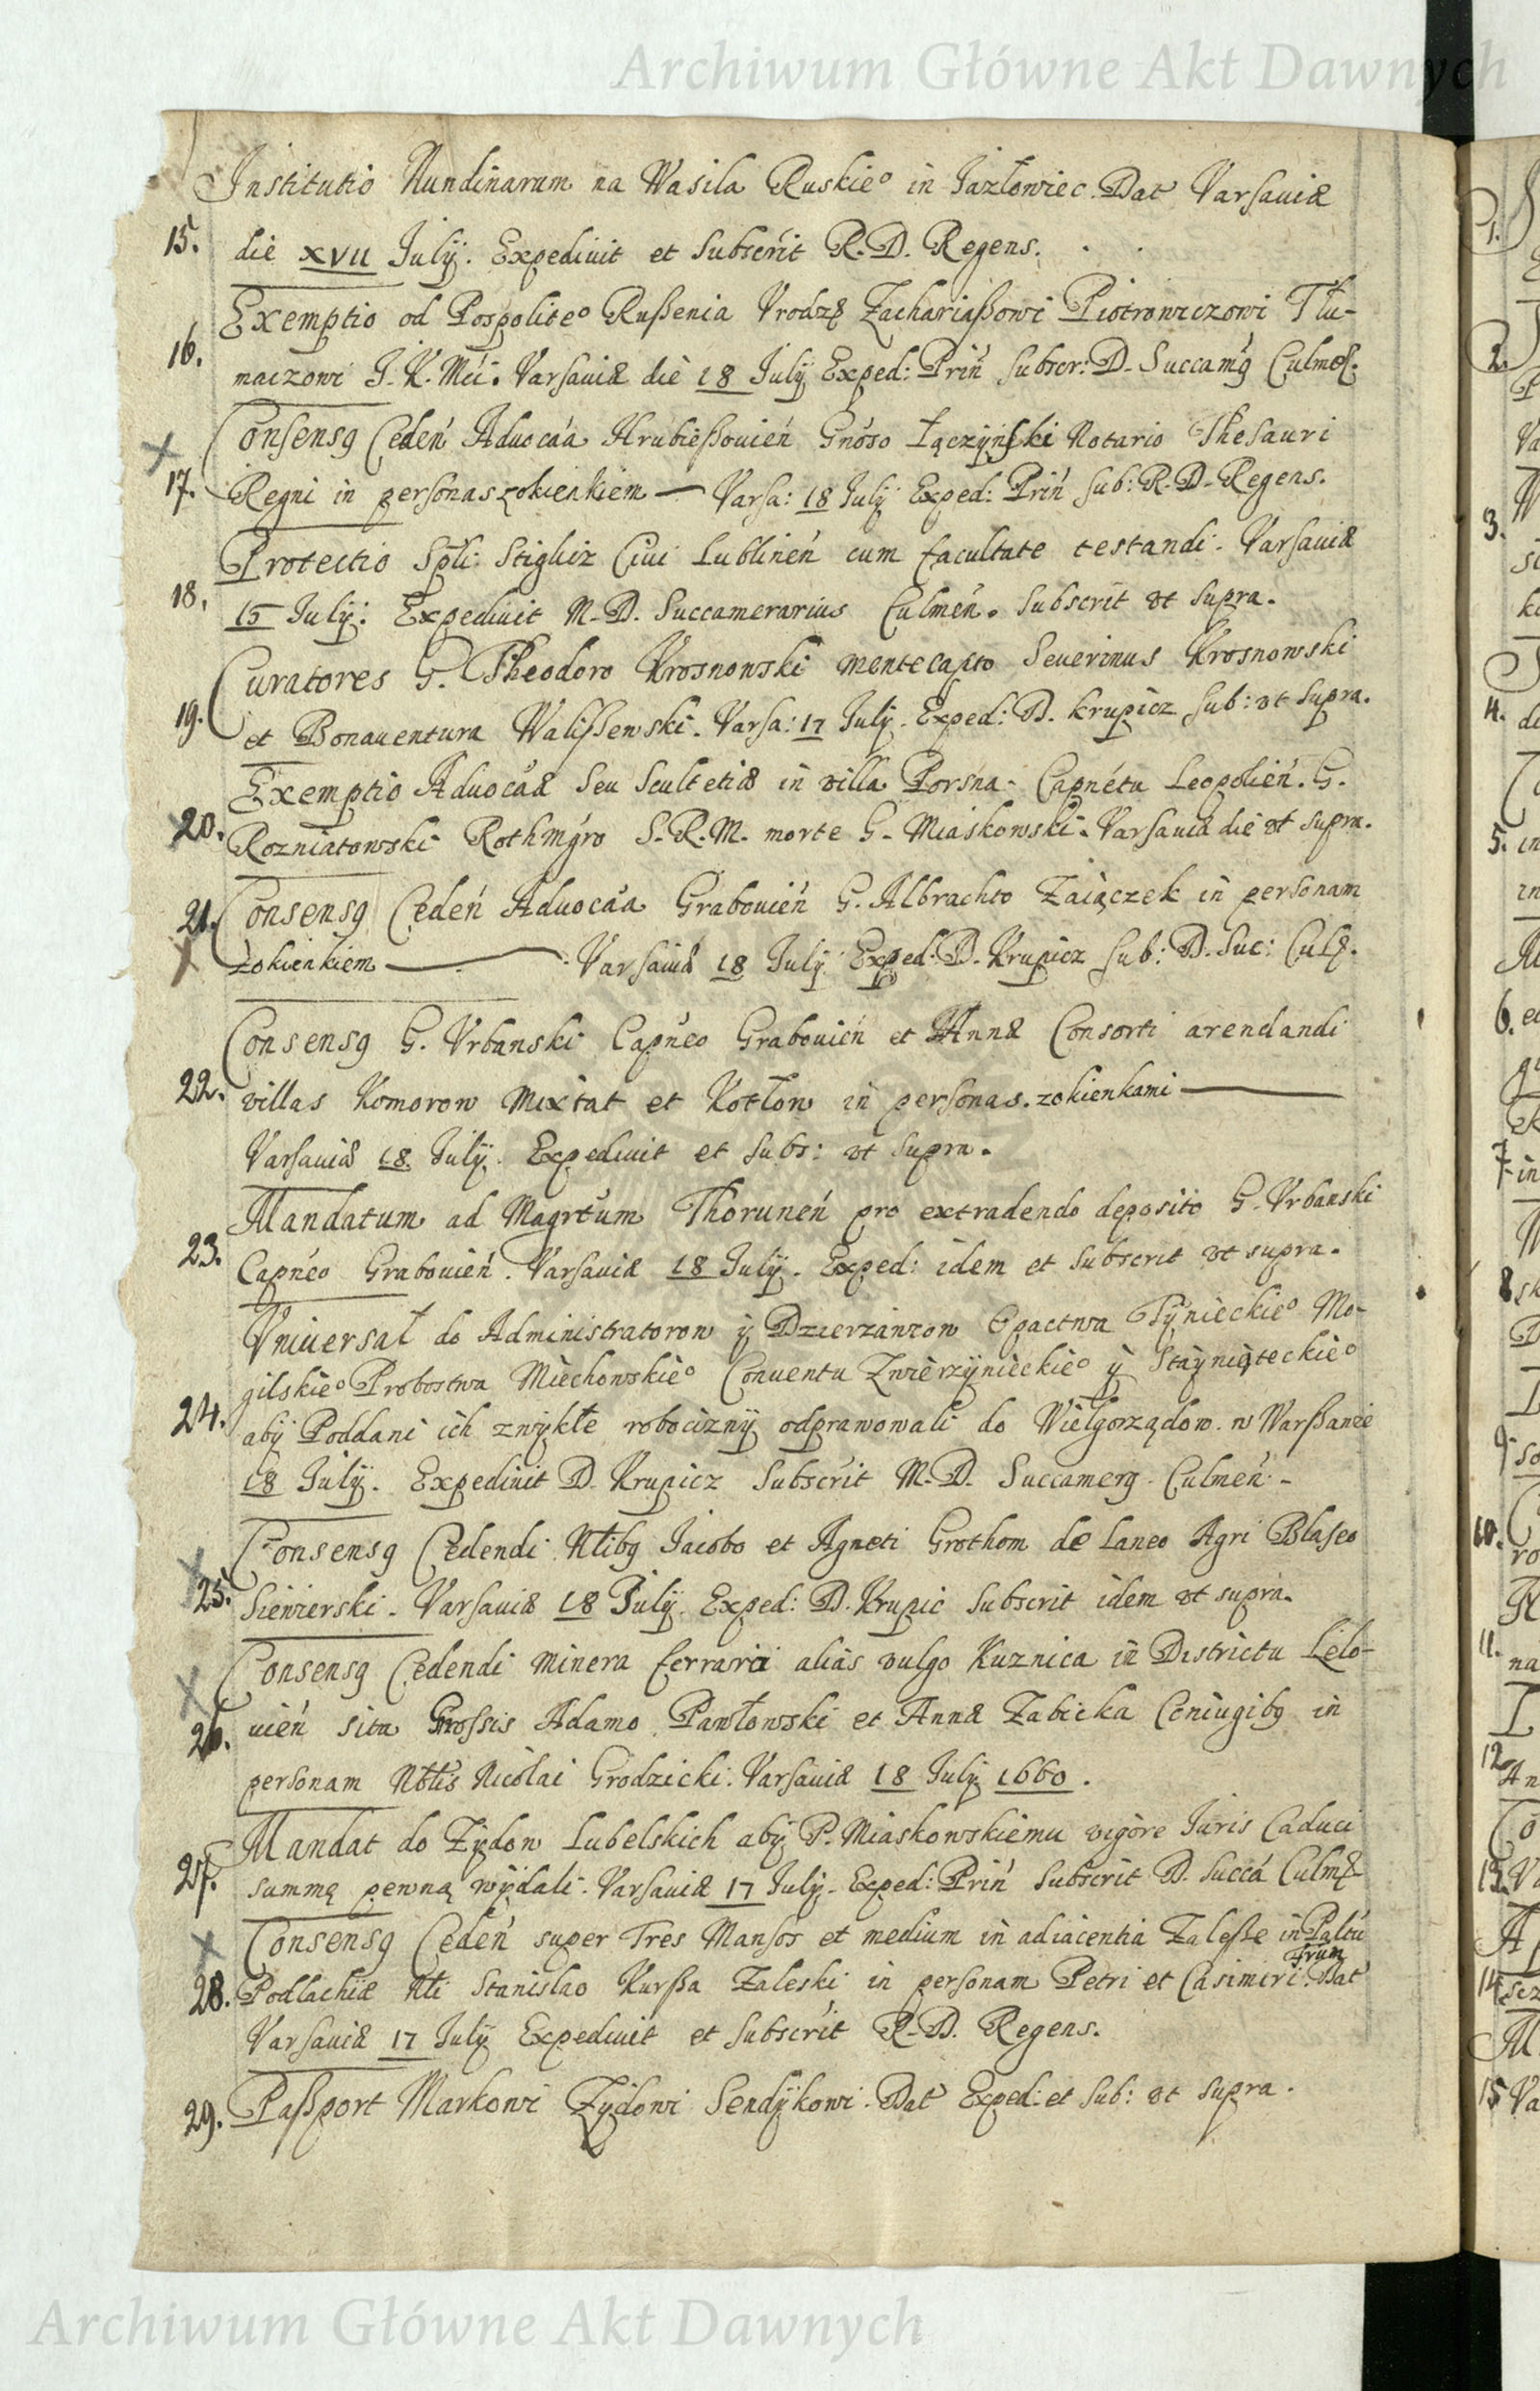 Archiwum Główne Akt Dawnych
Institutio Nundinarum na Wasila Ruskie° in Jazłowiec. Dat Varsauiæ
15. die XVII July. Expediuit et Subscrit R. D. Regens.
Exemptio od Pospolite° Rußenia Vrodzę Zachariaßowi Piotrowiczowi Tłu-
16. maczowi J. K. Mći. Varsauiæ die 18 July Exped: Prin Subscr: D. Succamg Culmeń.
Consensg Cedeń Aduocáa Hrubießouień Gnóso Łączyński Notario Thesauri
17. Regni in personas zokienkiem — Varsa: 18 July Exped: Prin Sub: R. D. Regens.
Protectio Spli: Stigliz Ciui Lublineń cum facultate testandi. Varsauiæ
18. 15 July: Expediuit M. D. Succamerarius Culmeń. Subscrit vt supra.
Curatores G. Theodoro Krosnowski mentecapto Seuerinus Krosnowski
19. et Bonauentura Walißewski. Varsa: 17 July. Exped: D. Krupicz Sub: vt supra.
Exemptio Aduocáæ seu Scultetiæ in villa Porsna. Capnétu Leopolień. G.
20. Rozniatowski Rothmgro S. R. M. morte G. Miaskowski. Varsauiæ die vt supra.
21. Consensg Cedeń Aduocáa Grabouień G. Albrachto Zaiączek in personam
zokienkiem — Varsauiæ 18 July Exped: D. Krupicz Sub: D. Suc: Culę.
Consensg G. Vrbanski Capnéo Grabouień et Annæ Consorti arendandi
22. villas Komorow Mixtat et Kotłow in personas. zokienkami —
Varsauiæ 18 July. Expediuit et Subs: vt supra.
Mandatum ad Magrtum Thoruneń pro extradendo deposito G. Vrbanski
23. Capnéo Grabouień. Varsauiæ 18 July. Exped: idem et Subscrit vt supra.
Vniuersał do Administratorow ÿ Dzierzáwcow Opactwa Tÿnieckie° Mo-
gilskie° Probostwa Miechowskie° Conuentu Zwierzÿnieckie° ÿ Stayniąteckie°
24. abÿ Poddani ich zwÿkłe robociznÿ odprawowali do Wielgorządow. w Warßawie
18 July. Expediuit D. Krupicz Subscrit M. D. Succamerg Culmeń.
Consensg Cedendi Nlibg Jacobo et Agneti Grothom de Laneo Agri Blaseo
25. Siewierski. Varsauiæ 18 July. Exped: D. Krupic Subscrit idem vt supra.
Consensg Cedendi minera ferraria alias vulgo Kuznica in Districtu Lelo-
26. uień sita Grossis Adamo Pawłowski et Annæ Zabicka Coniugibg in
personam Nblis Nicolai Grodzicki. Varsauiæ 18 July 1660.
Mandat do Zydow Lubelskich abÿ P. Miaskowskiemu vigore Juris Caduci
27. summę pewną wÿdali. Varsauiæ 17 July. Exped: Prin Subscrit D. Succá Culmę
Consensg Cedeń super Tres Mansos et medium in adiacentia Zaleße in Paltu
28. Podlachiæ Nli Stanislao Kurßa Zaleski in personam Petri et Casimiri Frum Dat
Varsauiæ 17 July Expediuit et Subscrit R. D. Regens.
29. Paßport Markowi Zÿdowi Sendÿkowi. Dat Exped: et Sub: vt supra.
Archiwum Główne Akt Dawnych